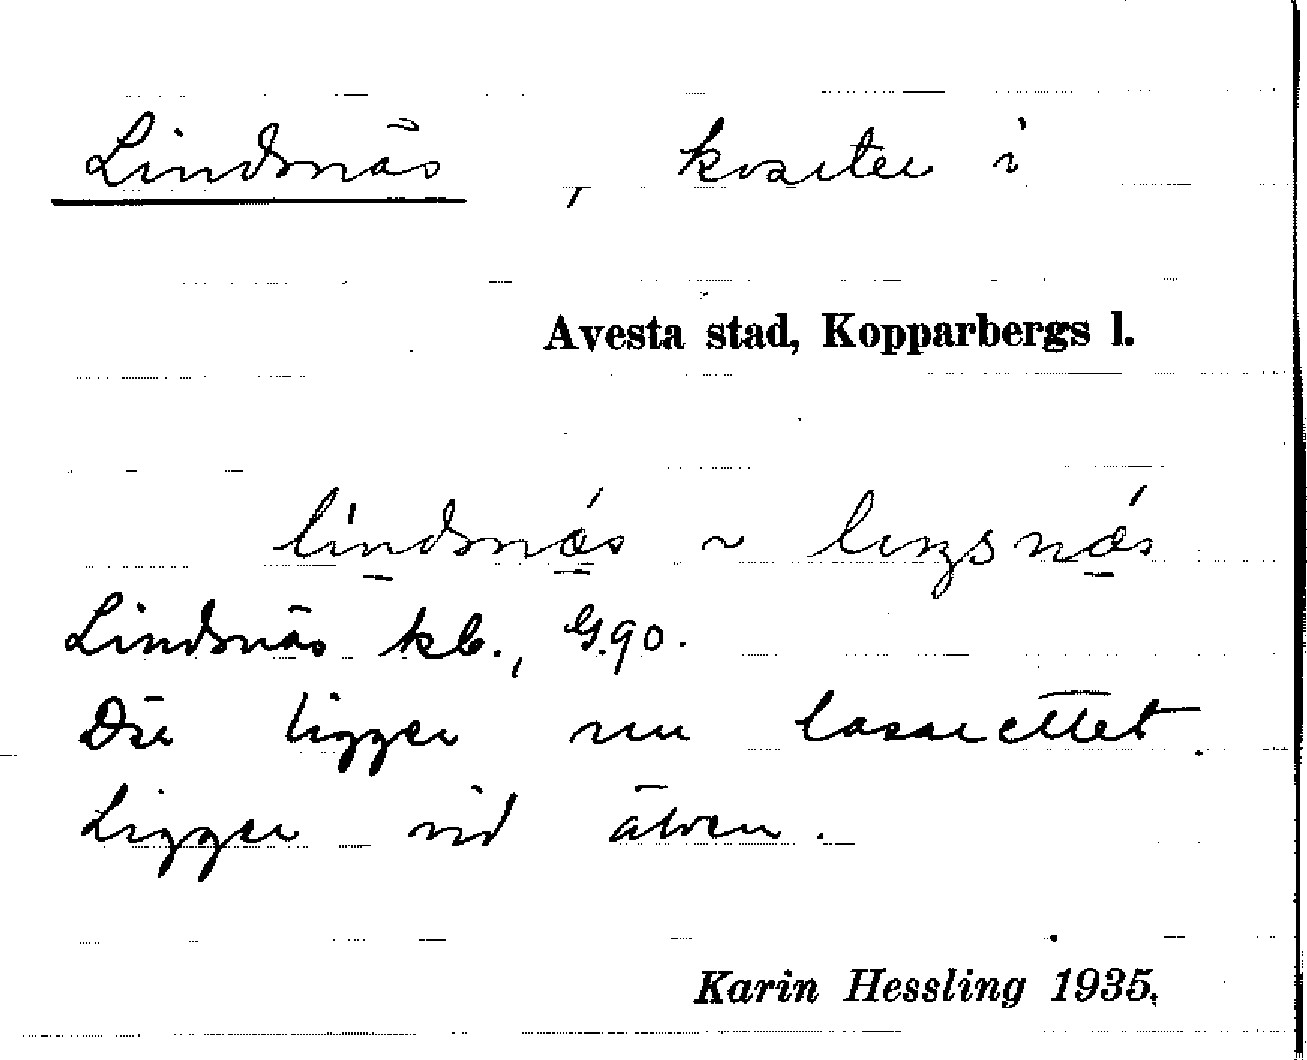 Lindsnäs , kvarter i
Avesta stad, Kopparbergs l.
líndsnǽs ~ lınsnǽs
Lindsnäs kb., G.90.
Där ligger nu lasarettet.
Ligger vid älven.
Karin Hessling 1935.